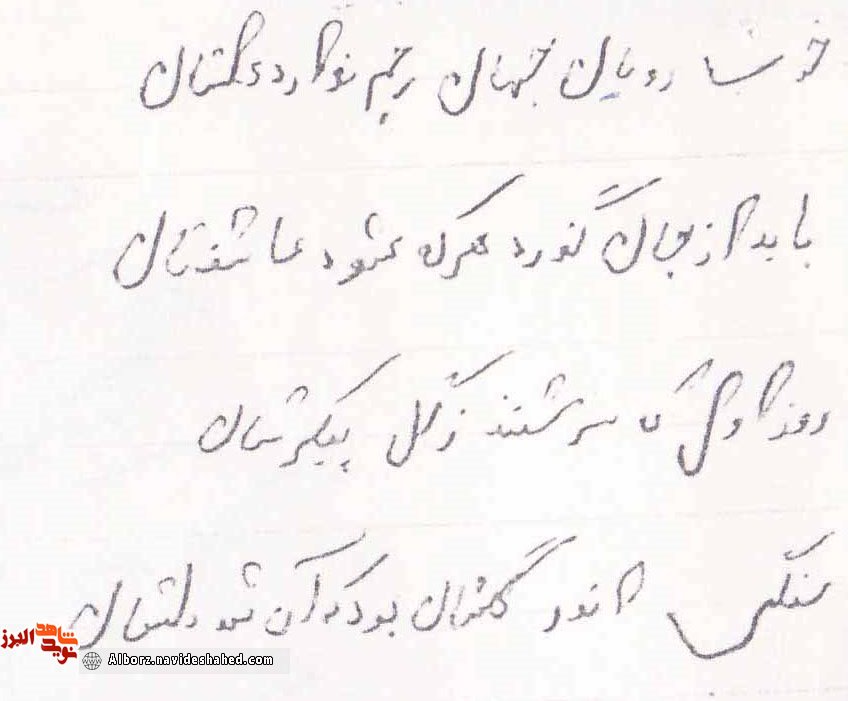 خوب رویان جهان رحم ندارد دلشان
باید از جان گذرد هرکه شود عاشقشان
روز اول که سرشتند ز گل پیکرشان
سنگی اندر گلشان بود که آن شد دلشان
نوید شاهد البرز
Alborz.navideshahed.com